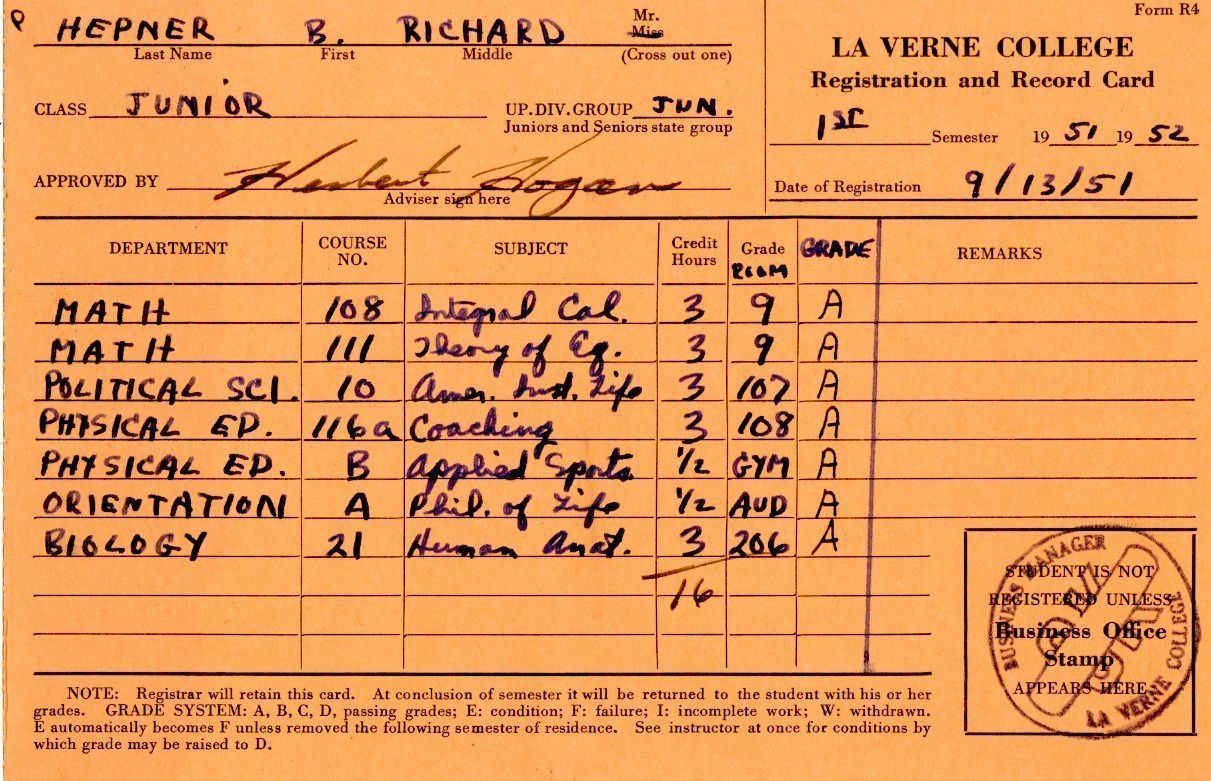 P HEPNER B. RICHARD Mr. Miss
Last Name First Middle (Cross out one)
CLASS JUNIOR UP.DIV.GROUP JUN.
Juniors and Seniors state group
APPROVED BY Herbert Hogan
Adviser sign here
Form R4
LA VERNE COLLEGE
Registration and Record Card
1ST Semester 19 51 19 52
Date of Registration 9/13/51
DEPARTMENT COURSE NO. SUBJECT Credit Hours Grade ROOM GRADE REMARKS
MATH 108 Integral Cal. 3 9 A
MATH 111 Theory of Eq. 3 9 A
POLITICAL SCI. 10 Amer. Inst. Life 3 107 A
PHYSICAL ED. 116a Coaching 3 108 A
PHYSICAL ED. B Applied Sports 1/2 GYM A
ORIENTATION A Phil. of Life 1/2 AUD A
BIOLOGY 21 Human Anat. 3 206 A
16
STUDENT IS NOT
REGISTERED UNLESS
Business Office
Stamp
APPEARS HERE
BUSINESS MANAGER
LA VERNE COLLEGE
NOTE: Registrar will retain this card. At conclusion of semester it will be returned to the student with his or her
grades. GRADE SYSTEM: A, B, C, D, passing grades; E: condition; F: failure; I: incomplete work; W: withdrawn.
E automatically becomes F unless removed the following semester of residence. See instructor at once for conditions by
which grade may be raised to D.